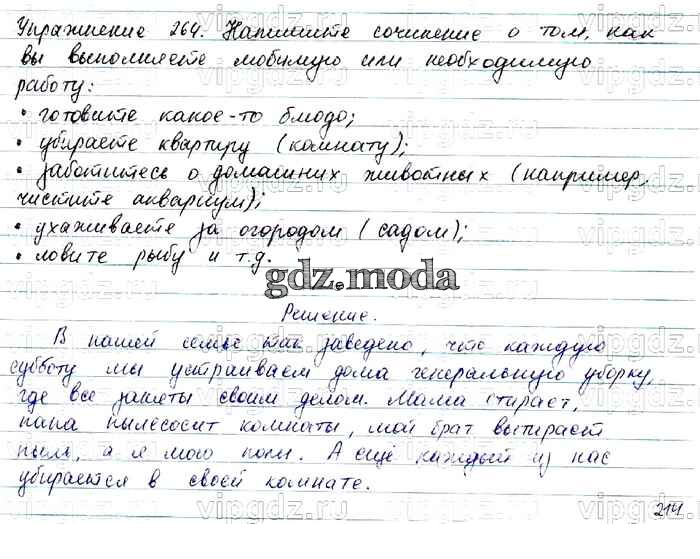 Упражнение 264. Напишите сочинение о том, как
вы выполняете любимую или необходимую
работу:
• готовите какое-то блюдо;
• убираете квартиру (комнату);
• заботитесь о домашних животных (например,
чистите аквариум);
• ухаживаете за огородом (садом);
• ловите рыбу и т.д.
gdz.moda
Решение.
В нашей семье так заведено, что каждую
субботу мы устраиваем дома генеральную уборку,
где все заняты своим делом. Мама стирает,
папа пылесосит комнаты, мой брат вытирает
пыль, а я мою полы. А ещё каждый из нас
убирается в своей комнате.
214